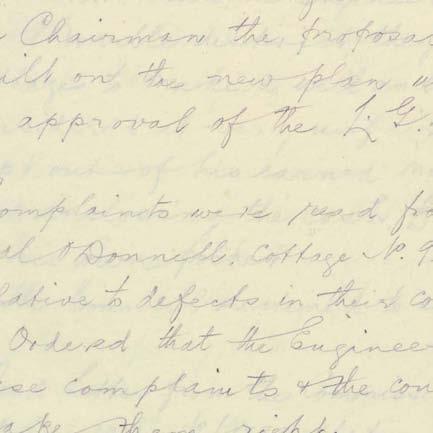 Chairman the proposa
ill on the new plan w
approval of the L. G.
omplaints were read fro
al O'Donnell. Cottage No. 9
lative to defects in their co
Ordered that the Enginee
se complaints & the con
ake them right.